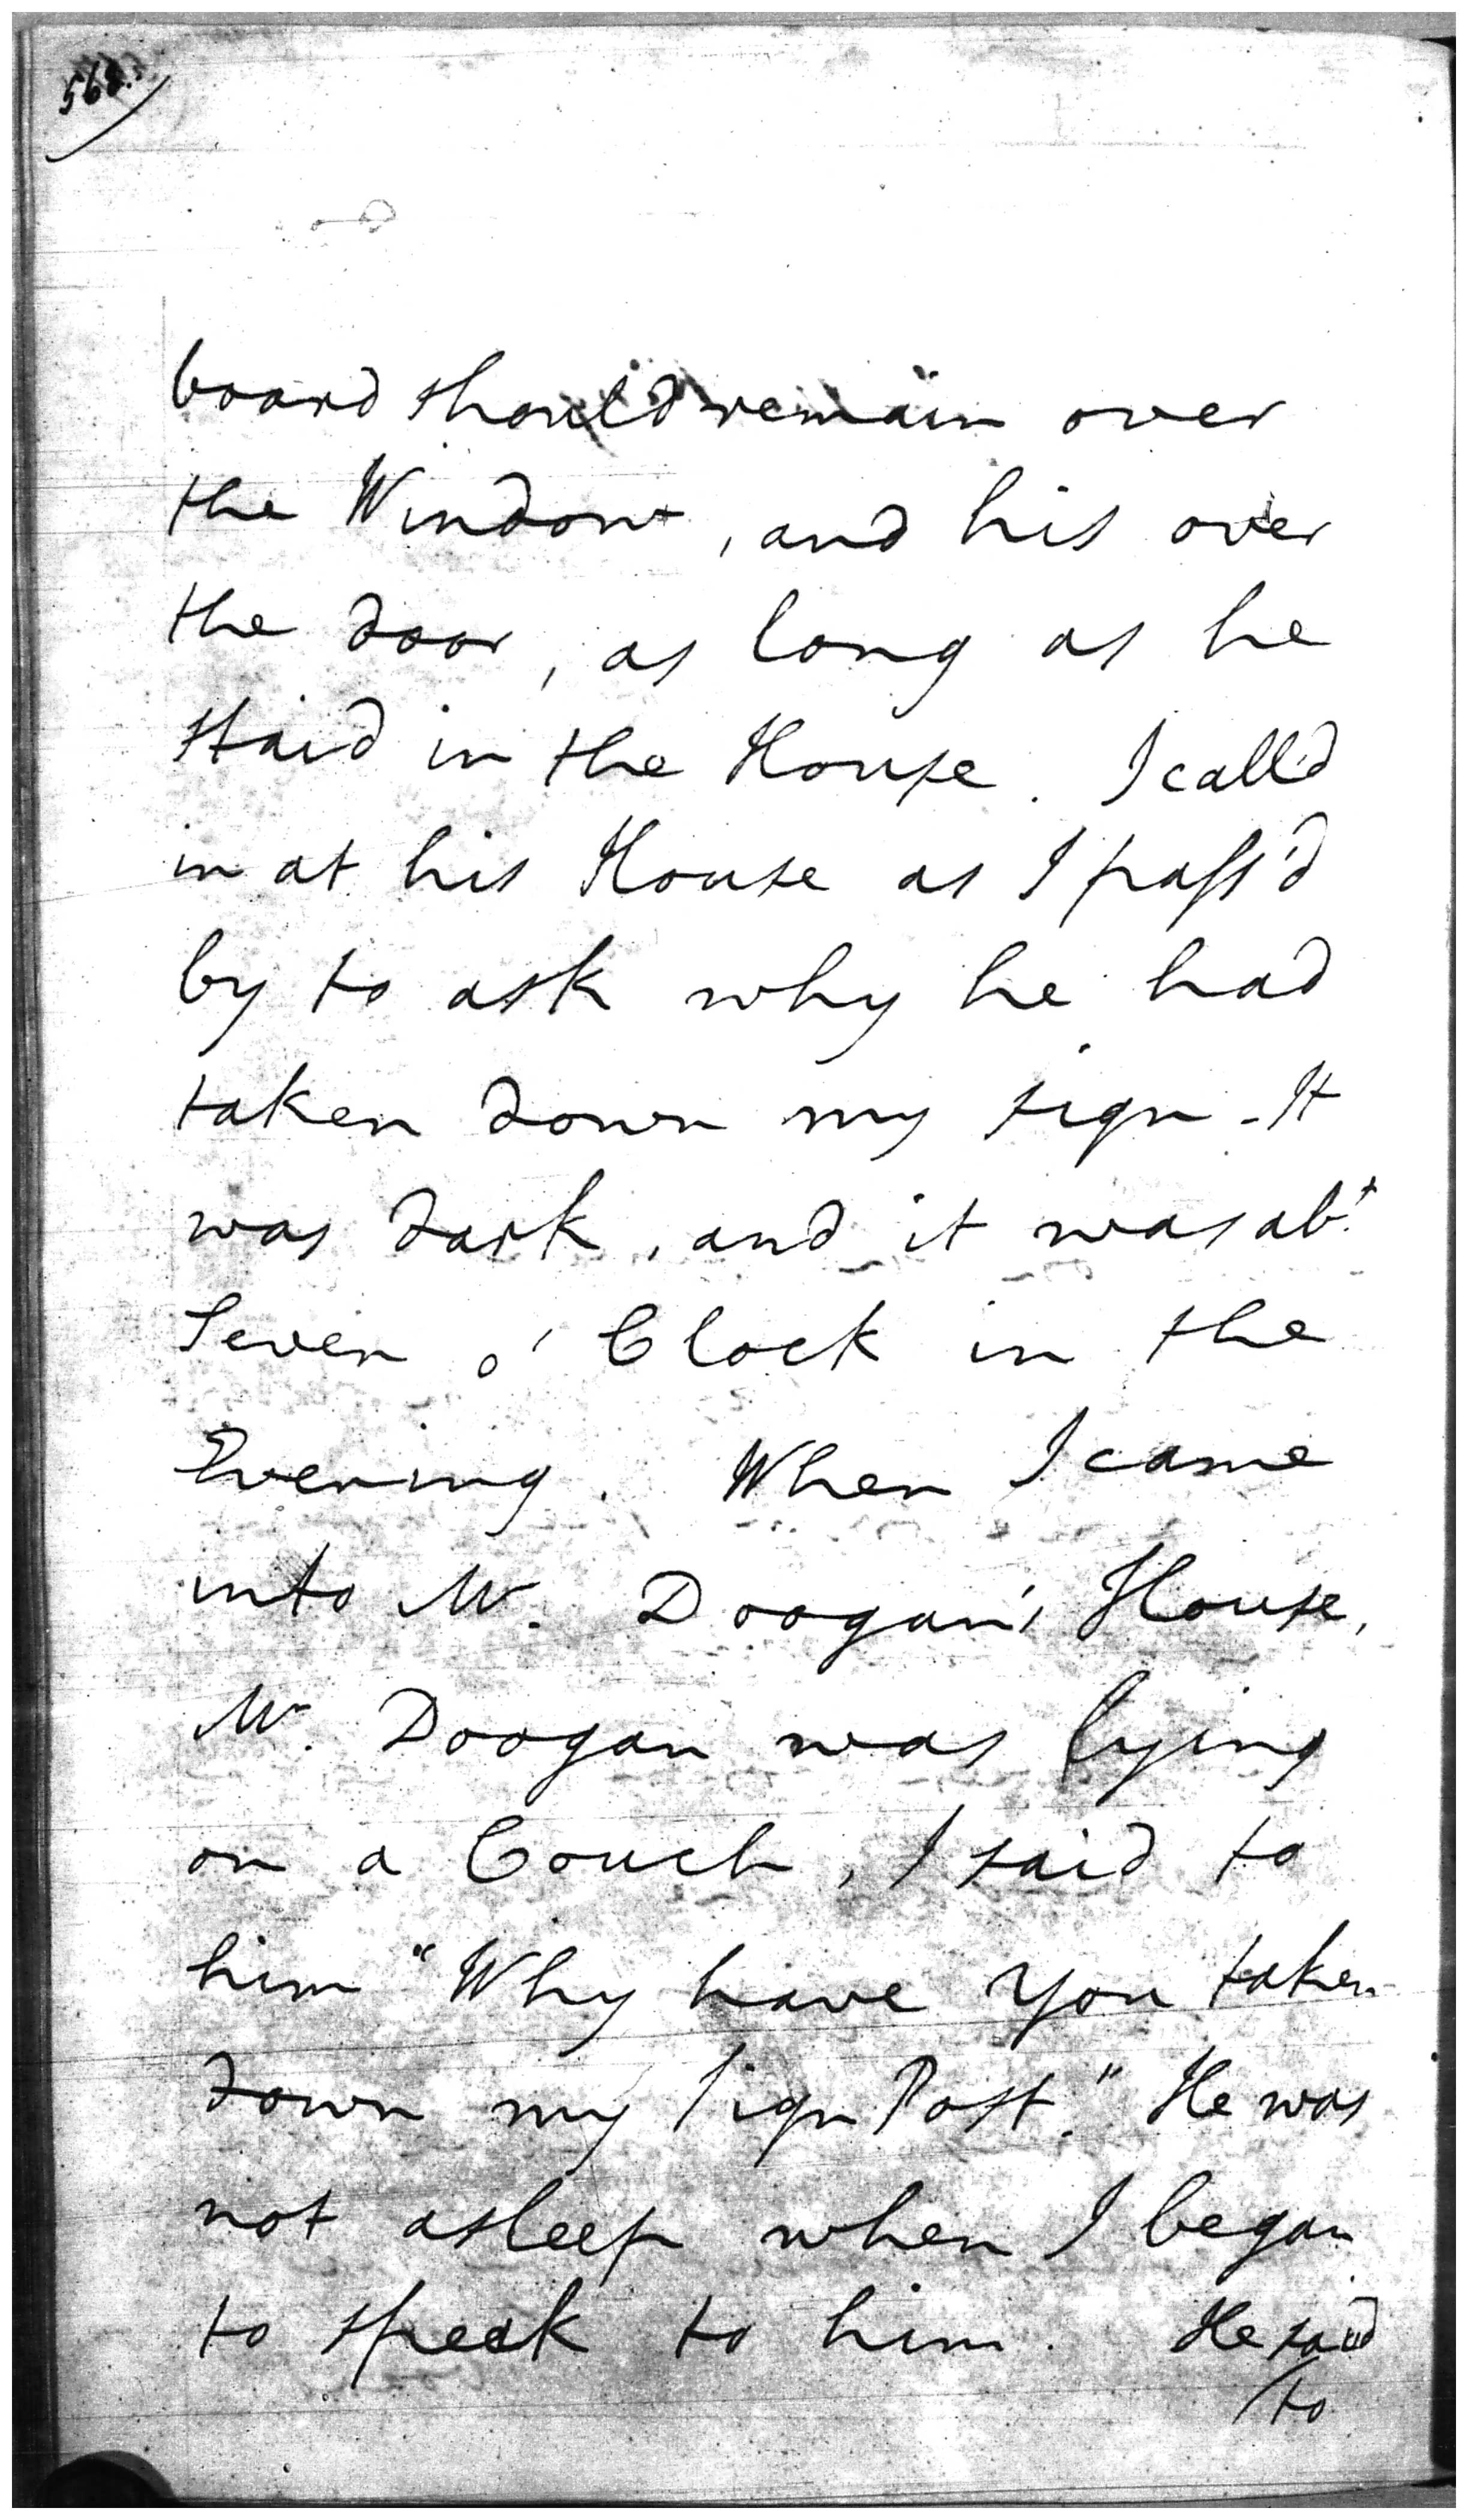 board should remain over
the Window, and his over
the door, as long as he
staid in the House. I call'd
in at his House as I pass'd
by to ask why he had
taken down my sign - It
was dark, and it was abt.
Seven o'Clock in the
Evening. When I came
into Mr. Doogan's House,
Mr. Doogan was lying
on a Couch, I said to
him "Why have You taken
down my Sign Post." He was
not asleep when I began
to speak to him. He said
/to